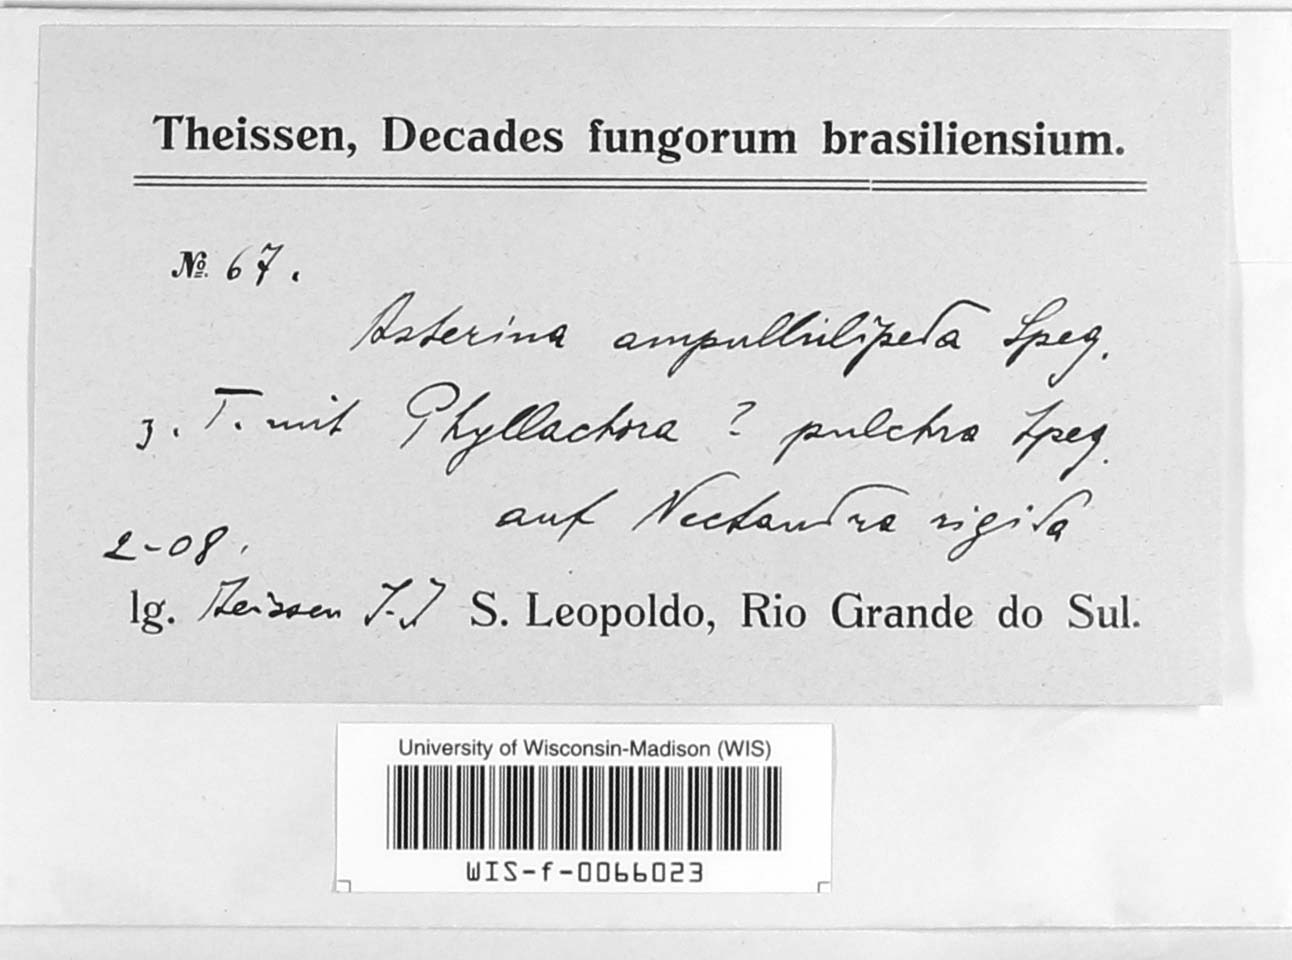 Theissen, Decades fungorum brasiliensium.
№ 67.
Asterina ampullulipeda Speg.
z. T. mit Phyllachora ? pulchra Speg.
auf Nectandra rigida
2-08.
lg. Theissen S.J S. Leopoldo, Rio Grande do Sul.
University of Wisconsin-Madison (WIS)
WIS-f-0066023